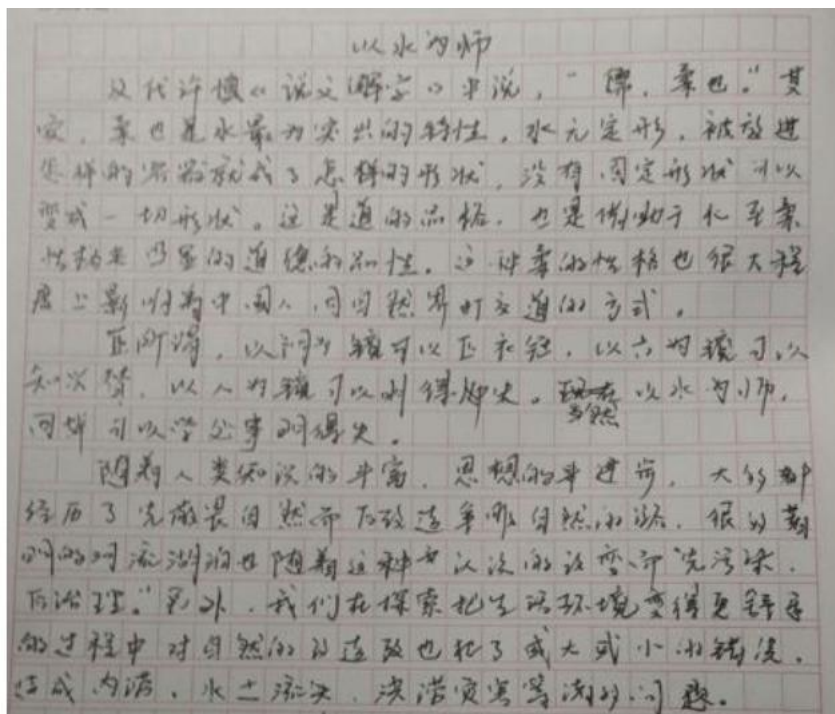 以水为师
汉代许慎《说文解字》中说,“ 柔也。”其
实,柔也是水最为突出的特性。水无定形,被放进
怎样的容器就成了怎样的形状,没有固定形状可以
变成一切形状。这是道的品格,也是 至柔
的道德的品性。这种柔的性格也很大程
度上影响着中国人同自然界打交道的方式。
正所谓,以铜为镜可以正衣冠,以古为镜可以
知兴替,以人为镜可以明得失。当然以水为师,
同样可以学会事明得失。
随着人类知识的丰富,思想的进步,大的都
经历了先敬畏自然而后改造 自然的路。很
的河流湖泊也随着这种 认识的改变而先污染,
后治理。”另外,我们在探索把生活环境变得更舒
的过程中对自然的改造 也犯了或大或小的错误,
造成内涝、水土流失、洪涝灾害等 问题。